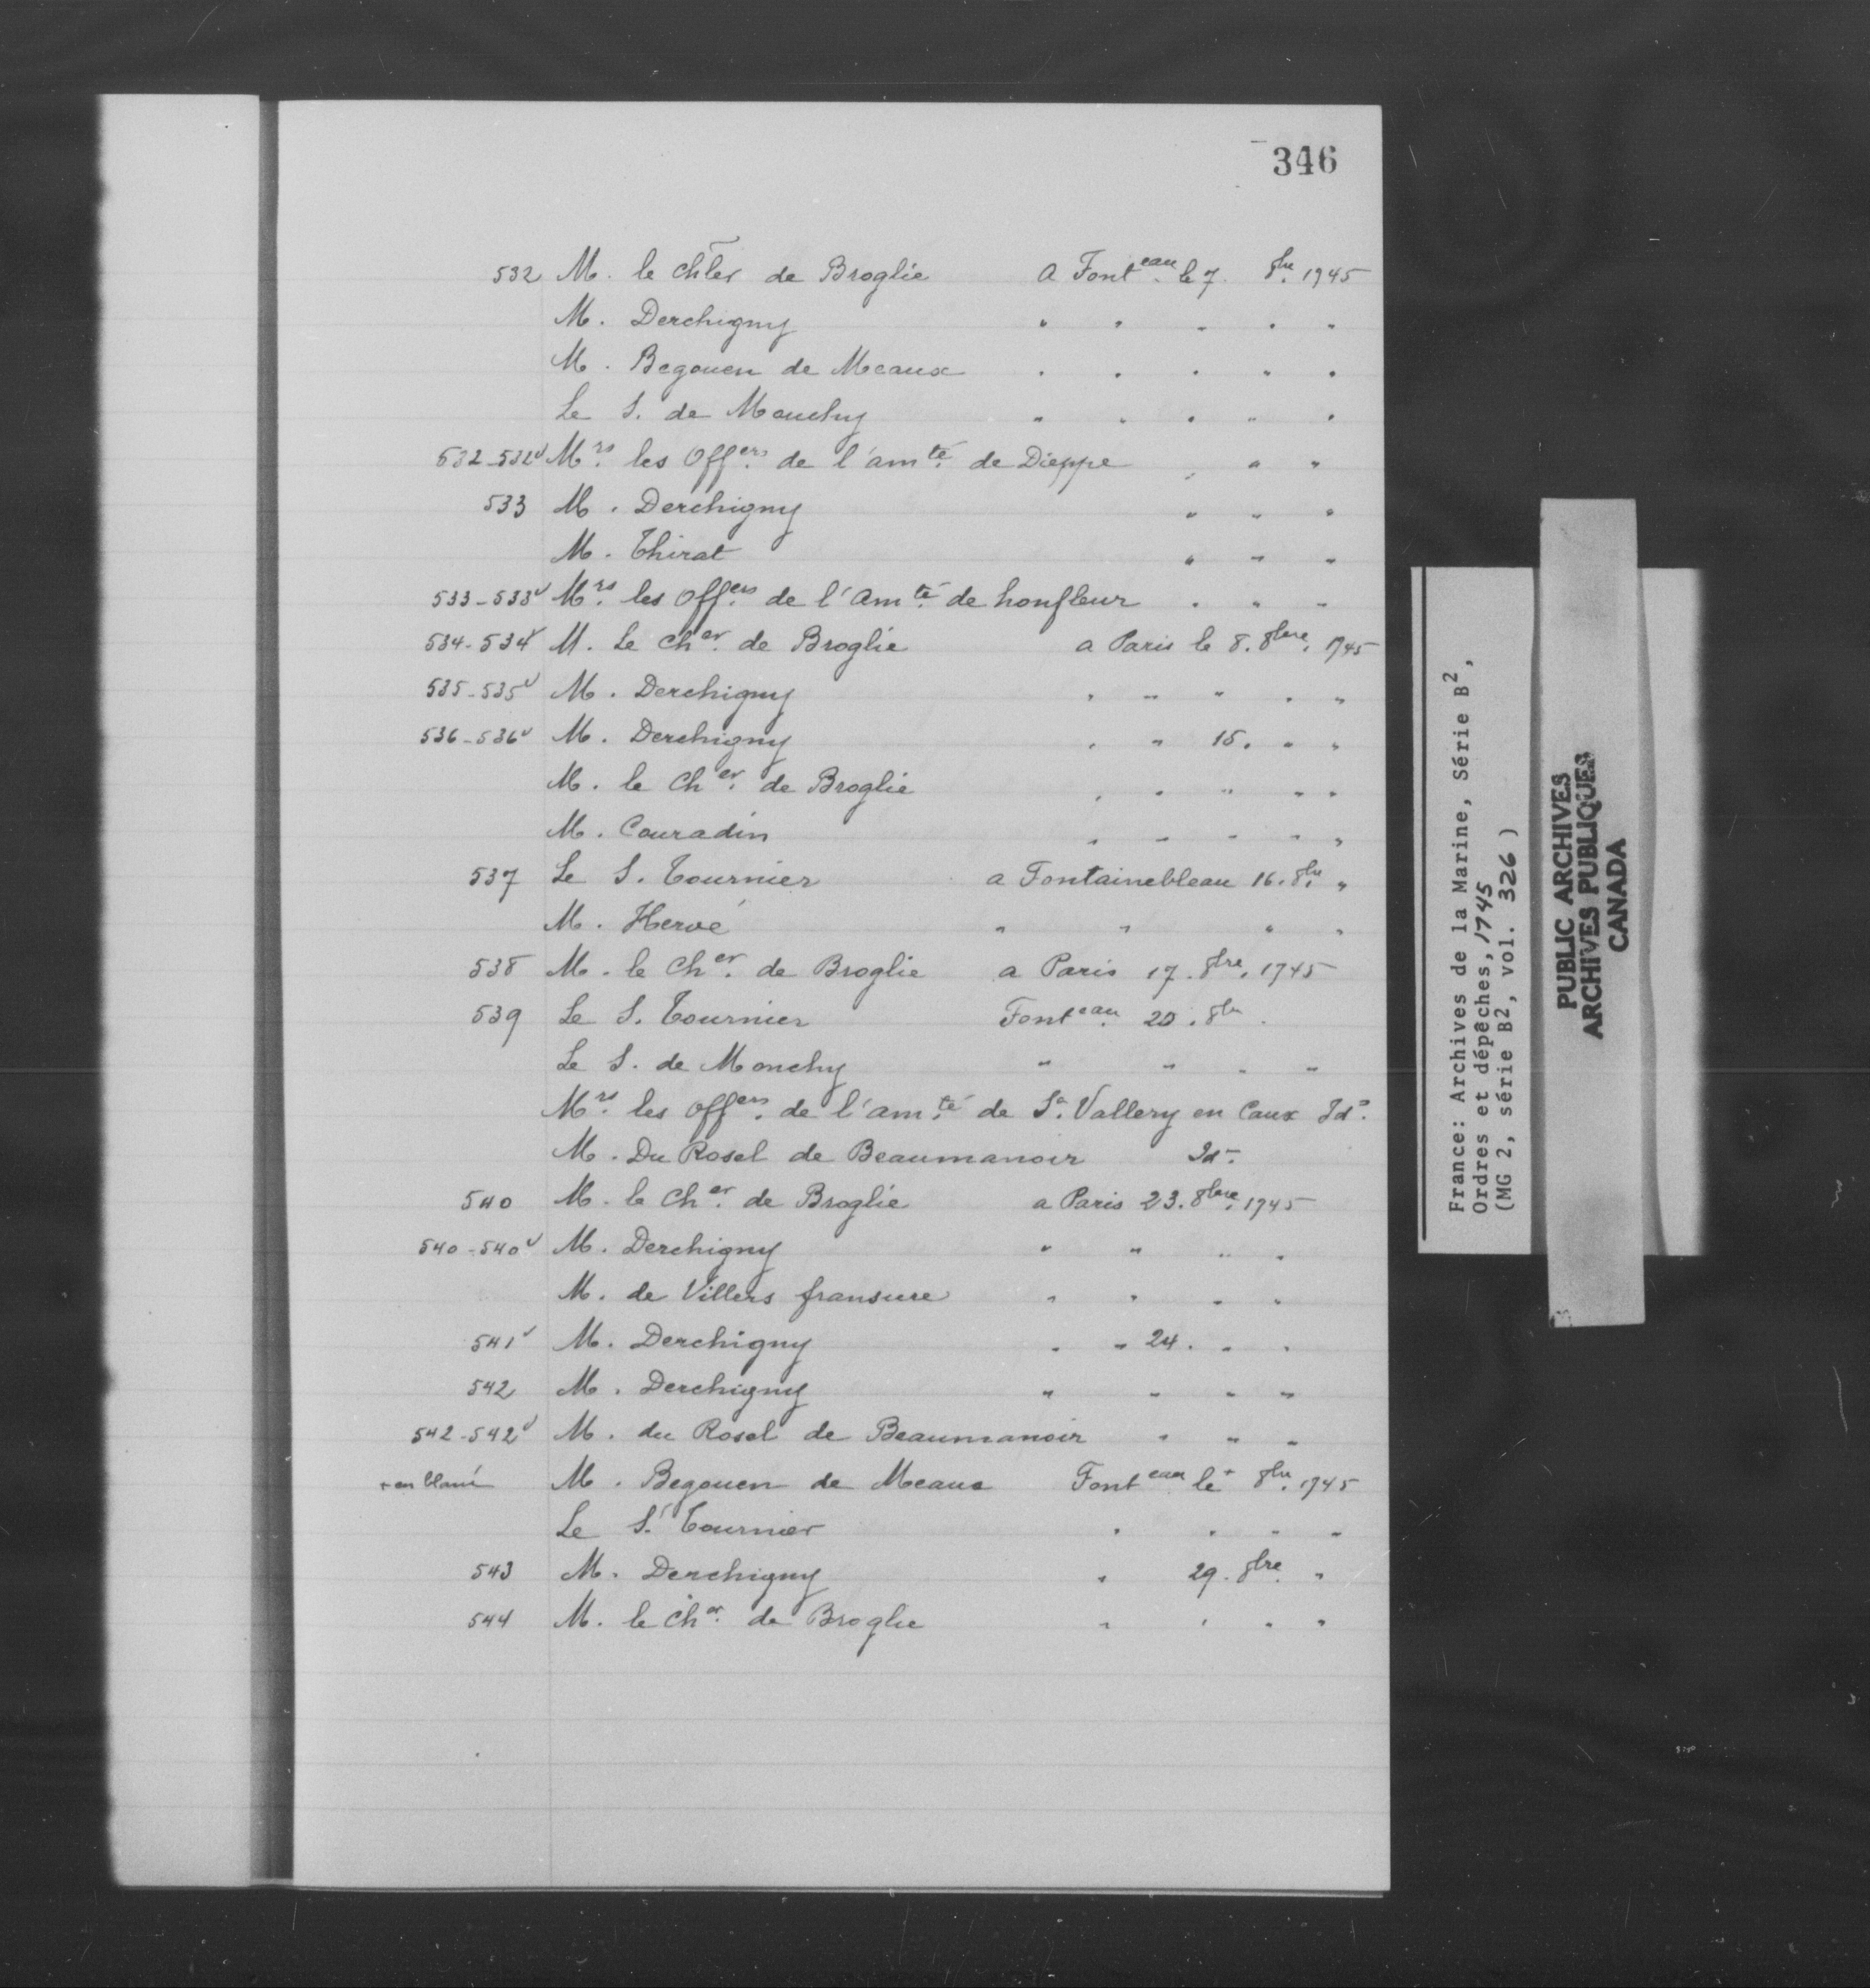 346
532 M. le chler de Broglie a Fonteau. le 7. 8bre. 1745
M. Derchigny " " " " "
M. Begouen de Meaux " " " " "
Le S. de Monchy " " " " "
532-532v Mrs. les Offers. de l'amté. de Dieppe " " "
533 M. Derchigny " " "
M. Thirat " " "
533-533v Mrs. les Offers. de l'Amté. de honfleur " " "
534-534v M. Le Cher. de Broglie a Paris le 8. 8bre. 1745
535-535v M. Derchigny " " " " "
536-536v M. Derchigny " " 15. " "
M. le Cher. de Broglie " " " " "
M. Couradin " " " " "
537 Le S. Tournier a Fontainebleau 16. 8bre. "
M. Hervé " " " "
538 M. le Cher. de Broglie a Paris 17. 8bre. 1745
539 Le S. Tournier Fonteau. 20. 8bre.
Le S. de Monchy " " " "
Mrs. les Offers. de l'amté. de St. Vallery en Caux Id.
M. Du Rosel de Beaumanoir Id.
540 M. le Cher. de Broglie a Paris 23. 8bre. 1745
540-540v M. Derchigny " " " "
M. de Villers fransure " " " "
541v M. Derchigny " " 24. " "
542 M. Derchigny " " " "
542-542v M. du Rosel de Beaumanoir " " "
+ en blanc M. Begouen de Meaux Fonteau le + 8bre. 1745
Le S. Tournier " " " "
543 M. Derchigny " 29. 8bre. "
544 M. le Cher. de Broglie " " " "
France: Archives de la Marine, Série B2,
Ordres et dépêches, 1745
(MG 2, série B2, vol. 326)
PUBLIC ARCHIVES
ARCHIVES PUBLIQUES
CANADA